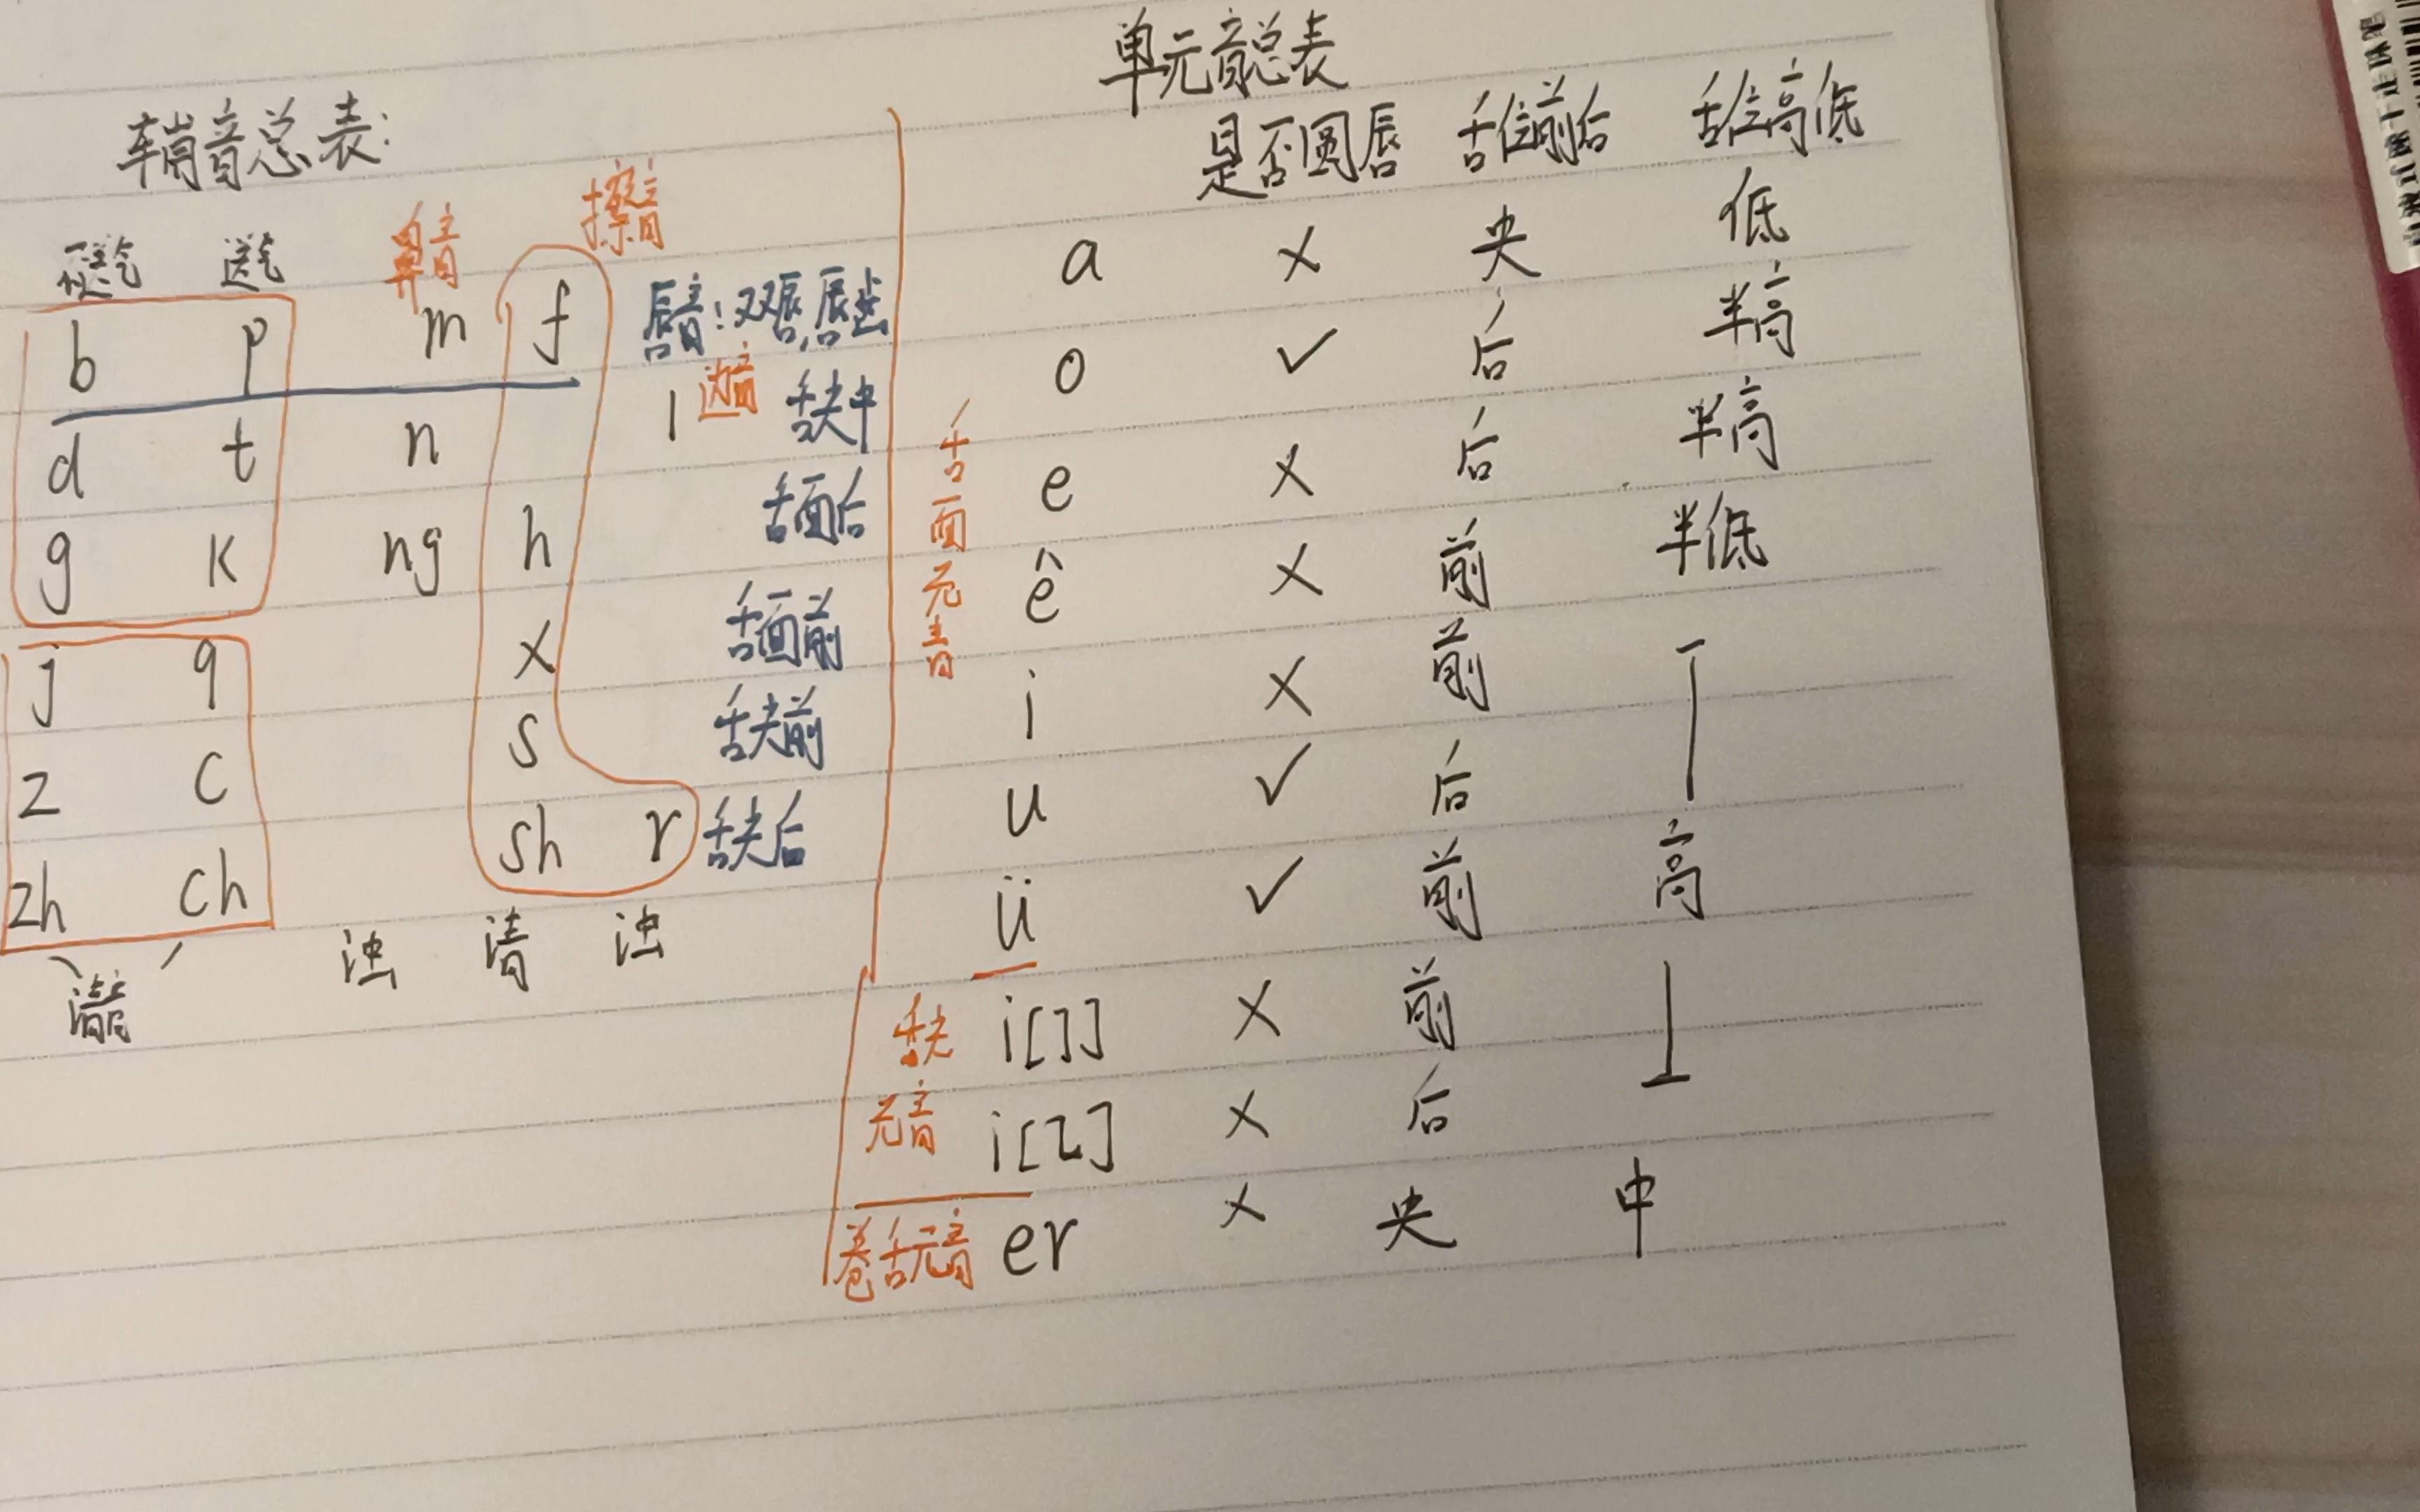 辅音总表:
不送气 送气 鼻音 擦音
b p m f 唇音:双唇,唇齿
d t n l 边音 舌尖中
g k ng h 舌面后
j q x 舌面前
z c s 舌尖前
zh ch sh r 舌尖后
清音 浊 清 浊
单元音总表
是否圆唇 舌位前后 舌位高低
舌面元音
a × 央 低
o ✓ 后 半高
e × 后 半高
ê × 前 半低
i × 前
u ✓ 后
ü ✓ 前 高
舌尖元音
i[ɿ] × 前
i[ʅ] × 后
卷舌元音 er × 央 中